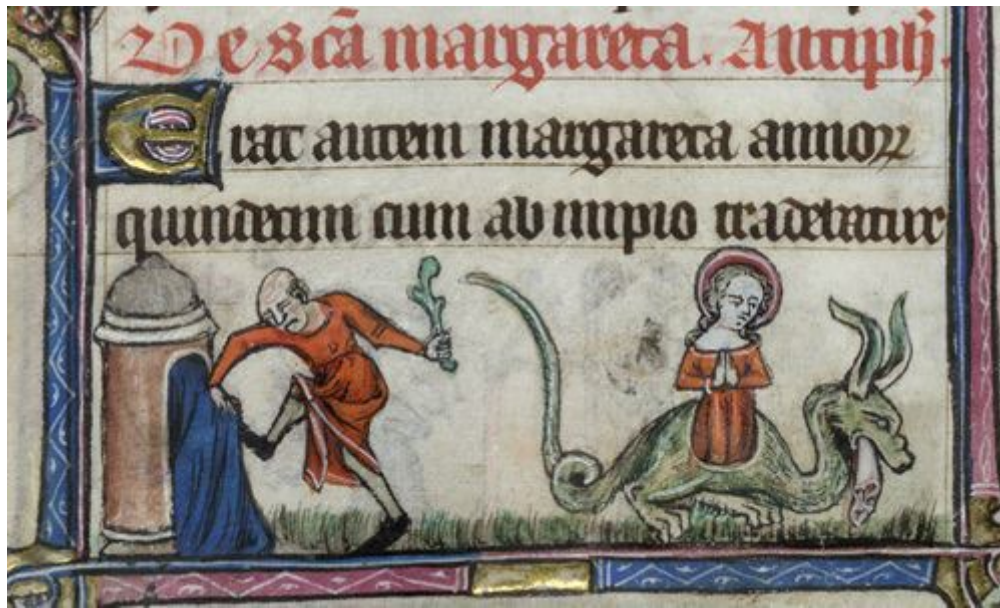 De scā margareta. Antiphē.
Erat autem margareta annoꝝ
quindecim cum ab impio traderetur